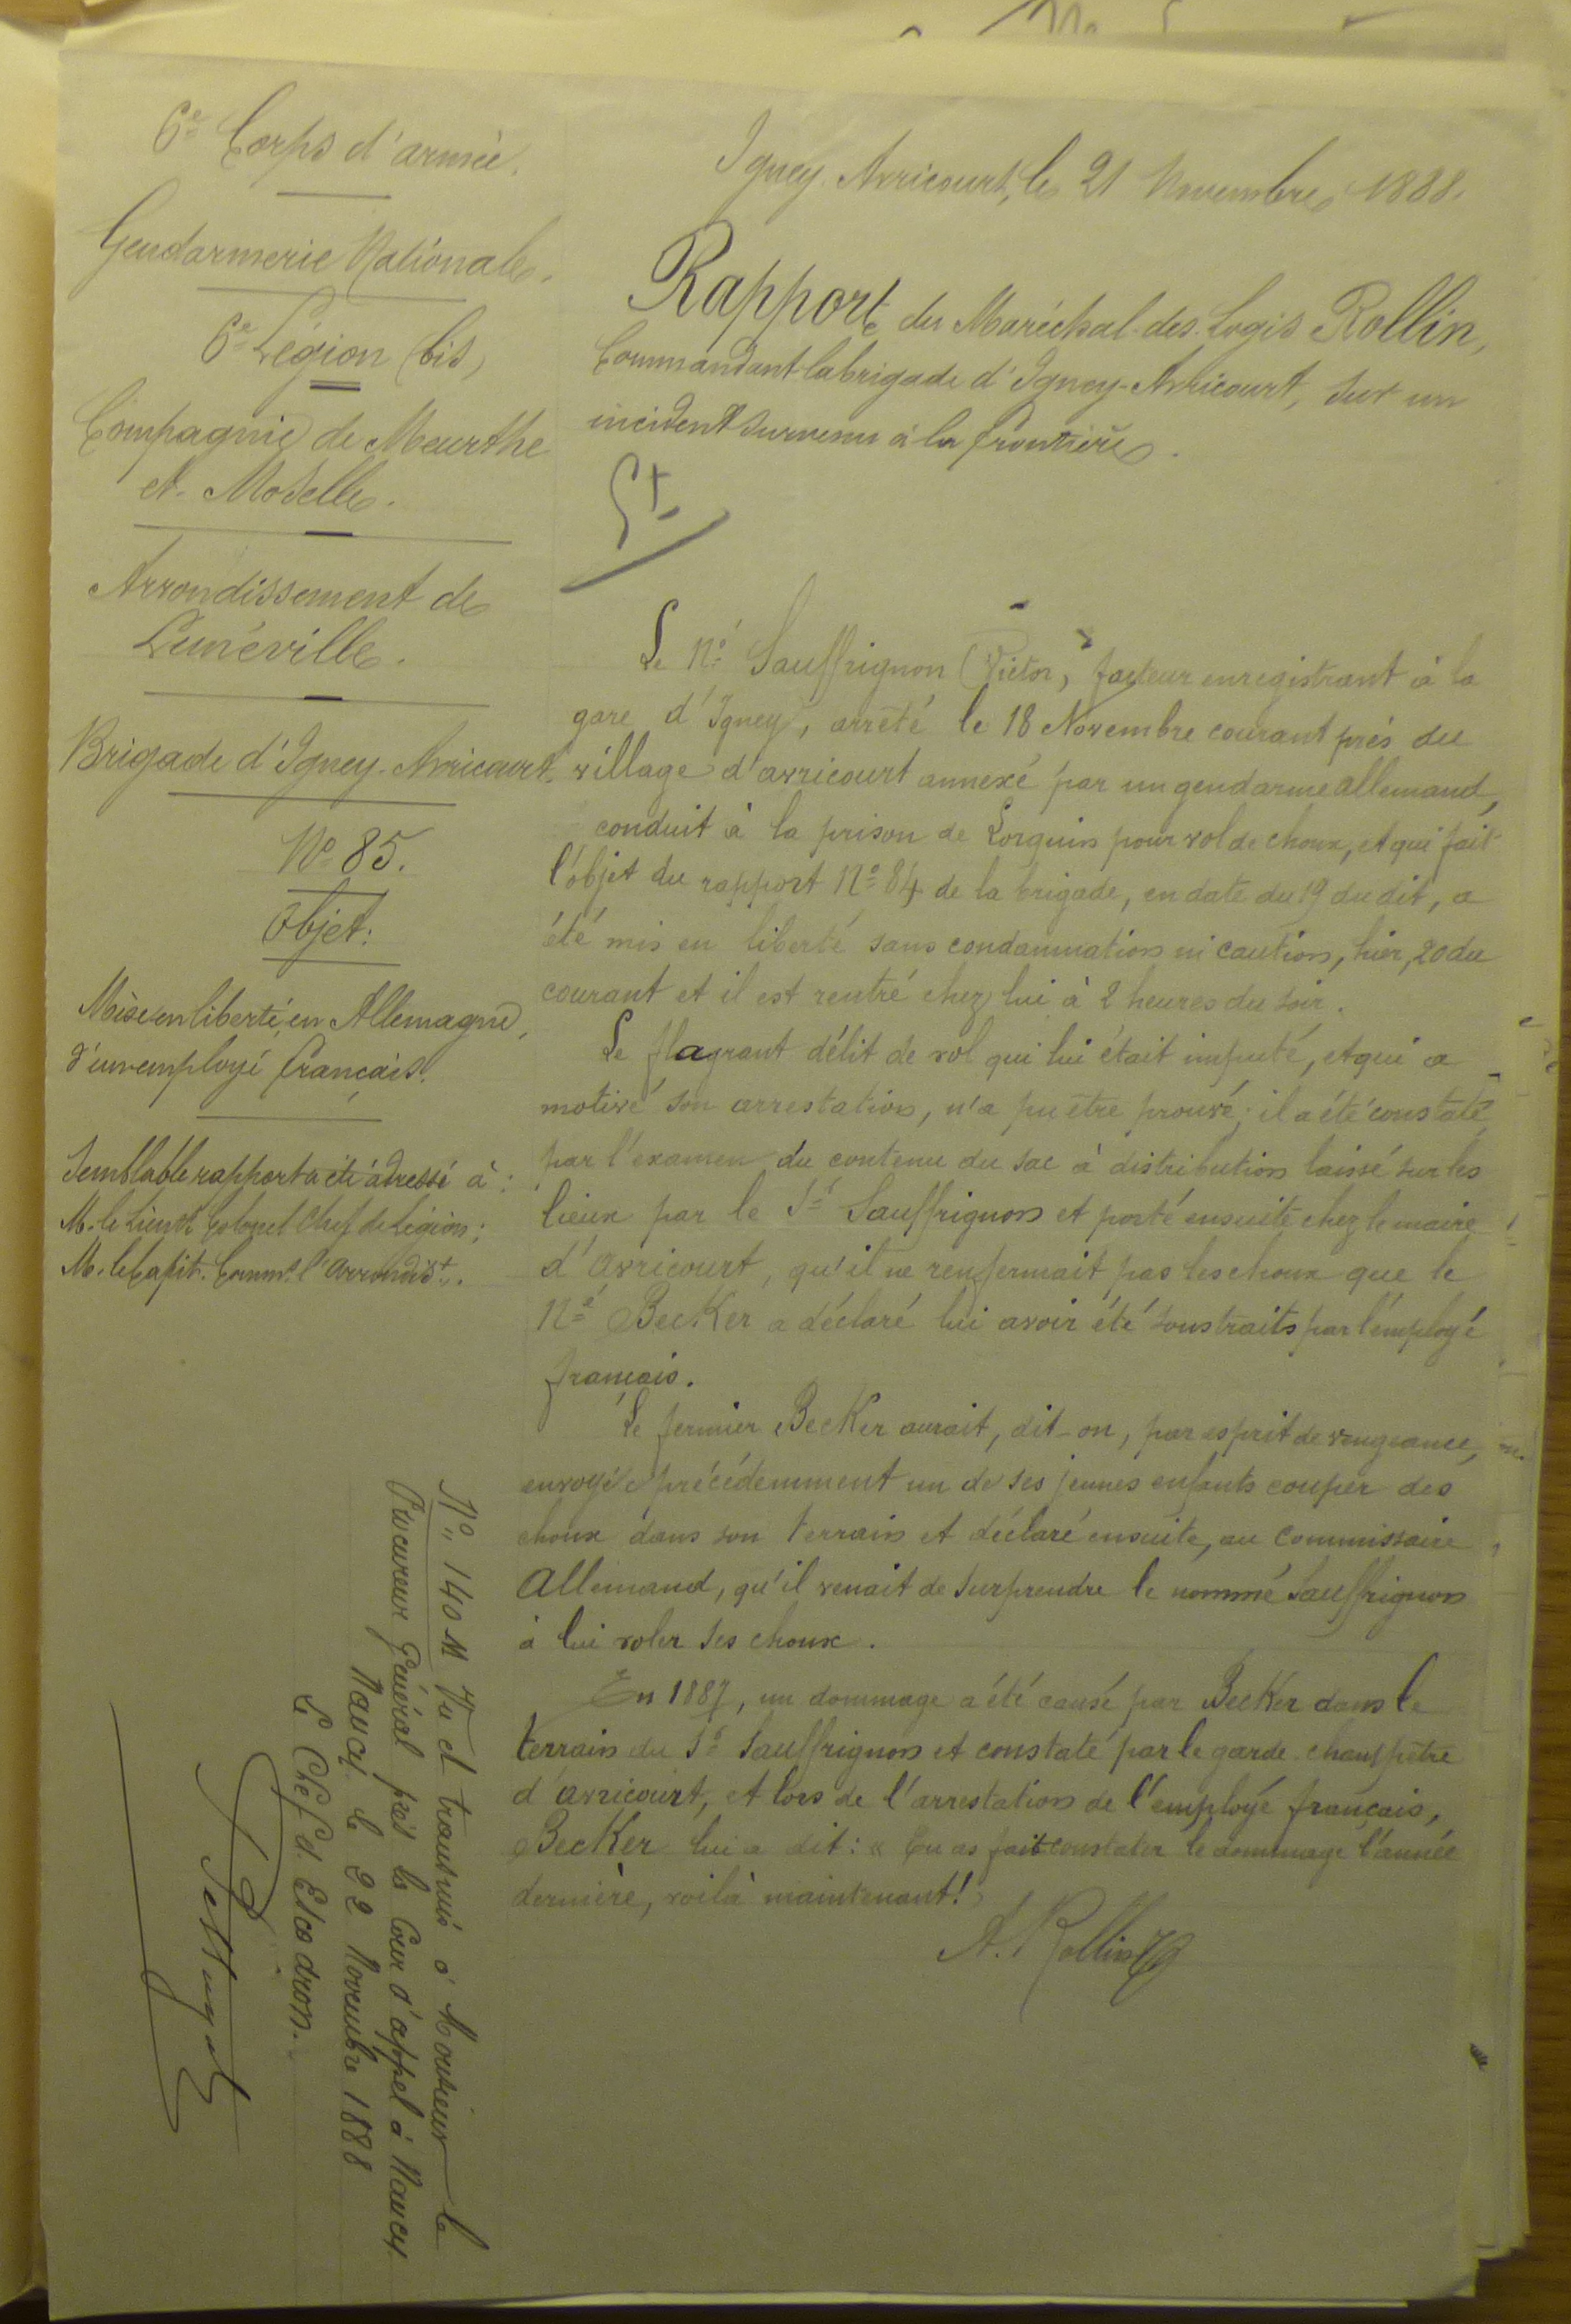 6e Corps d'armée.
Gendarmerie Nationale.
6e Légion (bis)
Compagnie de Meurthe
et Moselle.
Arrondissement de
Lunéville.
Brigade d'Igney-Avricourt.
No 85.
Objet:
Mise en liberté, en Allemagne,
d'un employé français.
Semblable rapport a été adressé à:
M. le Lieut Colonel Chef de Légion;
M. le Capit. Commt l'arrondist.
Igney-Avricourt, le 21 Novembre 1888.
Rapport du Maréchal-des-Logis Rollin,
Commandant la brigade d'Igney-Avricourt, sur un
incident survenu à la frontière.
Le né Sauffrignon (Victor), facteur enregistrant à la
gare d'Igney, arrêté le 18 Novembre courant près du
village d'avricourt annexé par un gendarme allemand,
conduit à la prison de Lorquin pour vol de choux, et qui fait
l'objet du rapport No 84 de la brigade, en date du 19 du dit, a
été mis en liberté sans condamnation ni caution, hier, 20 du
courant et il est rentré chez lui à 2 heures du soir.
Le flagrant délit de vol qui lui était imputé, et qui a
motivé son arrestation, n'a pu être prouvé; il a été constaté,
par l'examen du contenu du sac à distribution laissé sur les
lieux par le Sr Sauffrignon et porté ensuite chez le maire
d'avricourt, qu'il ne renfermait pas les choux que le
né Becker a déclaré lui avoir été soustraits par l'employé
français.
Le fermier Becker aurait, dit-on, par esprit de vengeance,
envoyé précédemment un de ses jeunes enfants couper des
choux dans son terrain et déclaré ensuite, au commissaire
allemand, qu'il venait de surprendre le nommé Sauffrignon
à lui voler ses choux.
En 1887, un dommage a été causé par Becker dans le
terrain du Sr Sauffrignon et constaté par le garde-champêtre
d'avricourt, et lors de l'arrestation de l'employé français,
Becker lui a dit: « Tu as fait constater le dommage l'année
dernière, voilà maintenant! »
A. Rollin
No 140 M Vu et transmis à Monsieur le
Procureur Général près la Cour d'appel à Nancy
Nancy le 22 Novembre 1888
Le Chef d'Escadron.